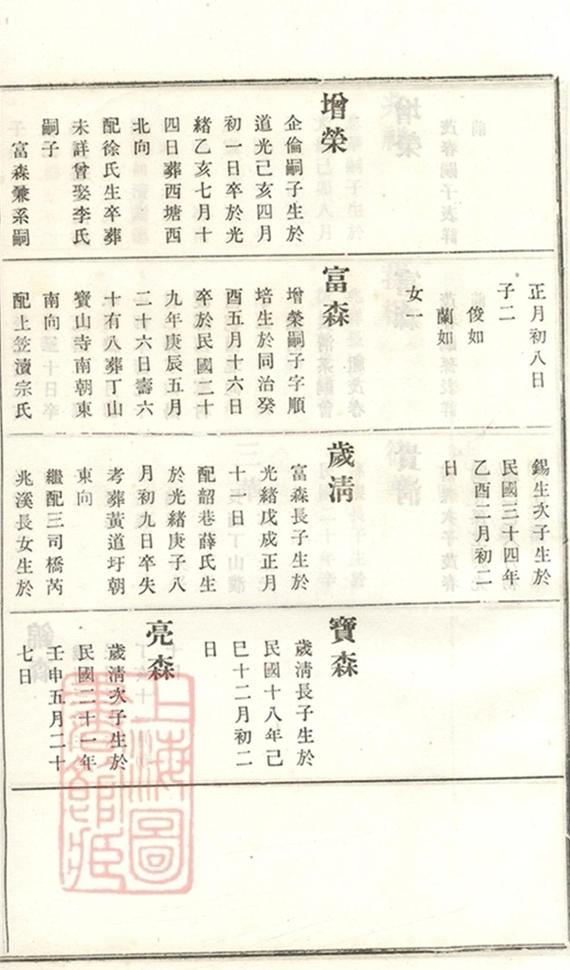 增榮
企倫嗣子生於
道光己亥四月
初一日卒於光
緒乙亥七月十
四日葬西塘西
北向
配徐氏生卒葬
未詳曾娶李氏
嗣子
富森兼系嗣
正月初八日
子二
俊如
蘭如
女一
富森
增榮嗣子字順
培生於同治癸
酉五月十六日
卒於民國二十
九年庚辰五月
二十六日壽六
十有八葬丁山
寶山寺南朝東
南向
配上笠瀆宗氏
錫生次子生於
民國三十四年
乙酉二月初二
日
歲淸
富森長子生於
光緒戊戌正月
十一日
配韶巷薛氏生
於光緒庚子八
月初九日卒失
考葬黃道圩朝
東向
繼配三司橋芮
兆溪長女生於
寶森
歲淸長子生於
民國十八年己
巳十二月初二
日
亮森
歲淸次子生於
民國二十一年
壬申五月二十
七日
上海圖
書館藏